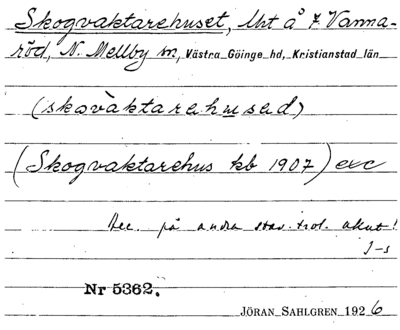 Skogvaktarehuset, lht å 7 Vanna-
röd, N. Mellby sn, Västra Göinge hd, Kristianstad län
(skogvàktarehused)
(Skogvaktarehus kb 1907) exc
Acc. på andra stav. trol. akut!
J-s
Nr 5362.
JÖRAN SAHLGREN 1926